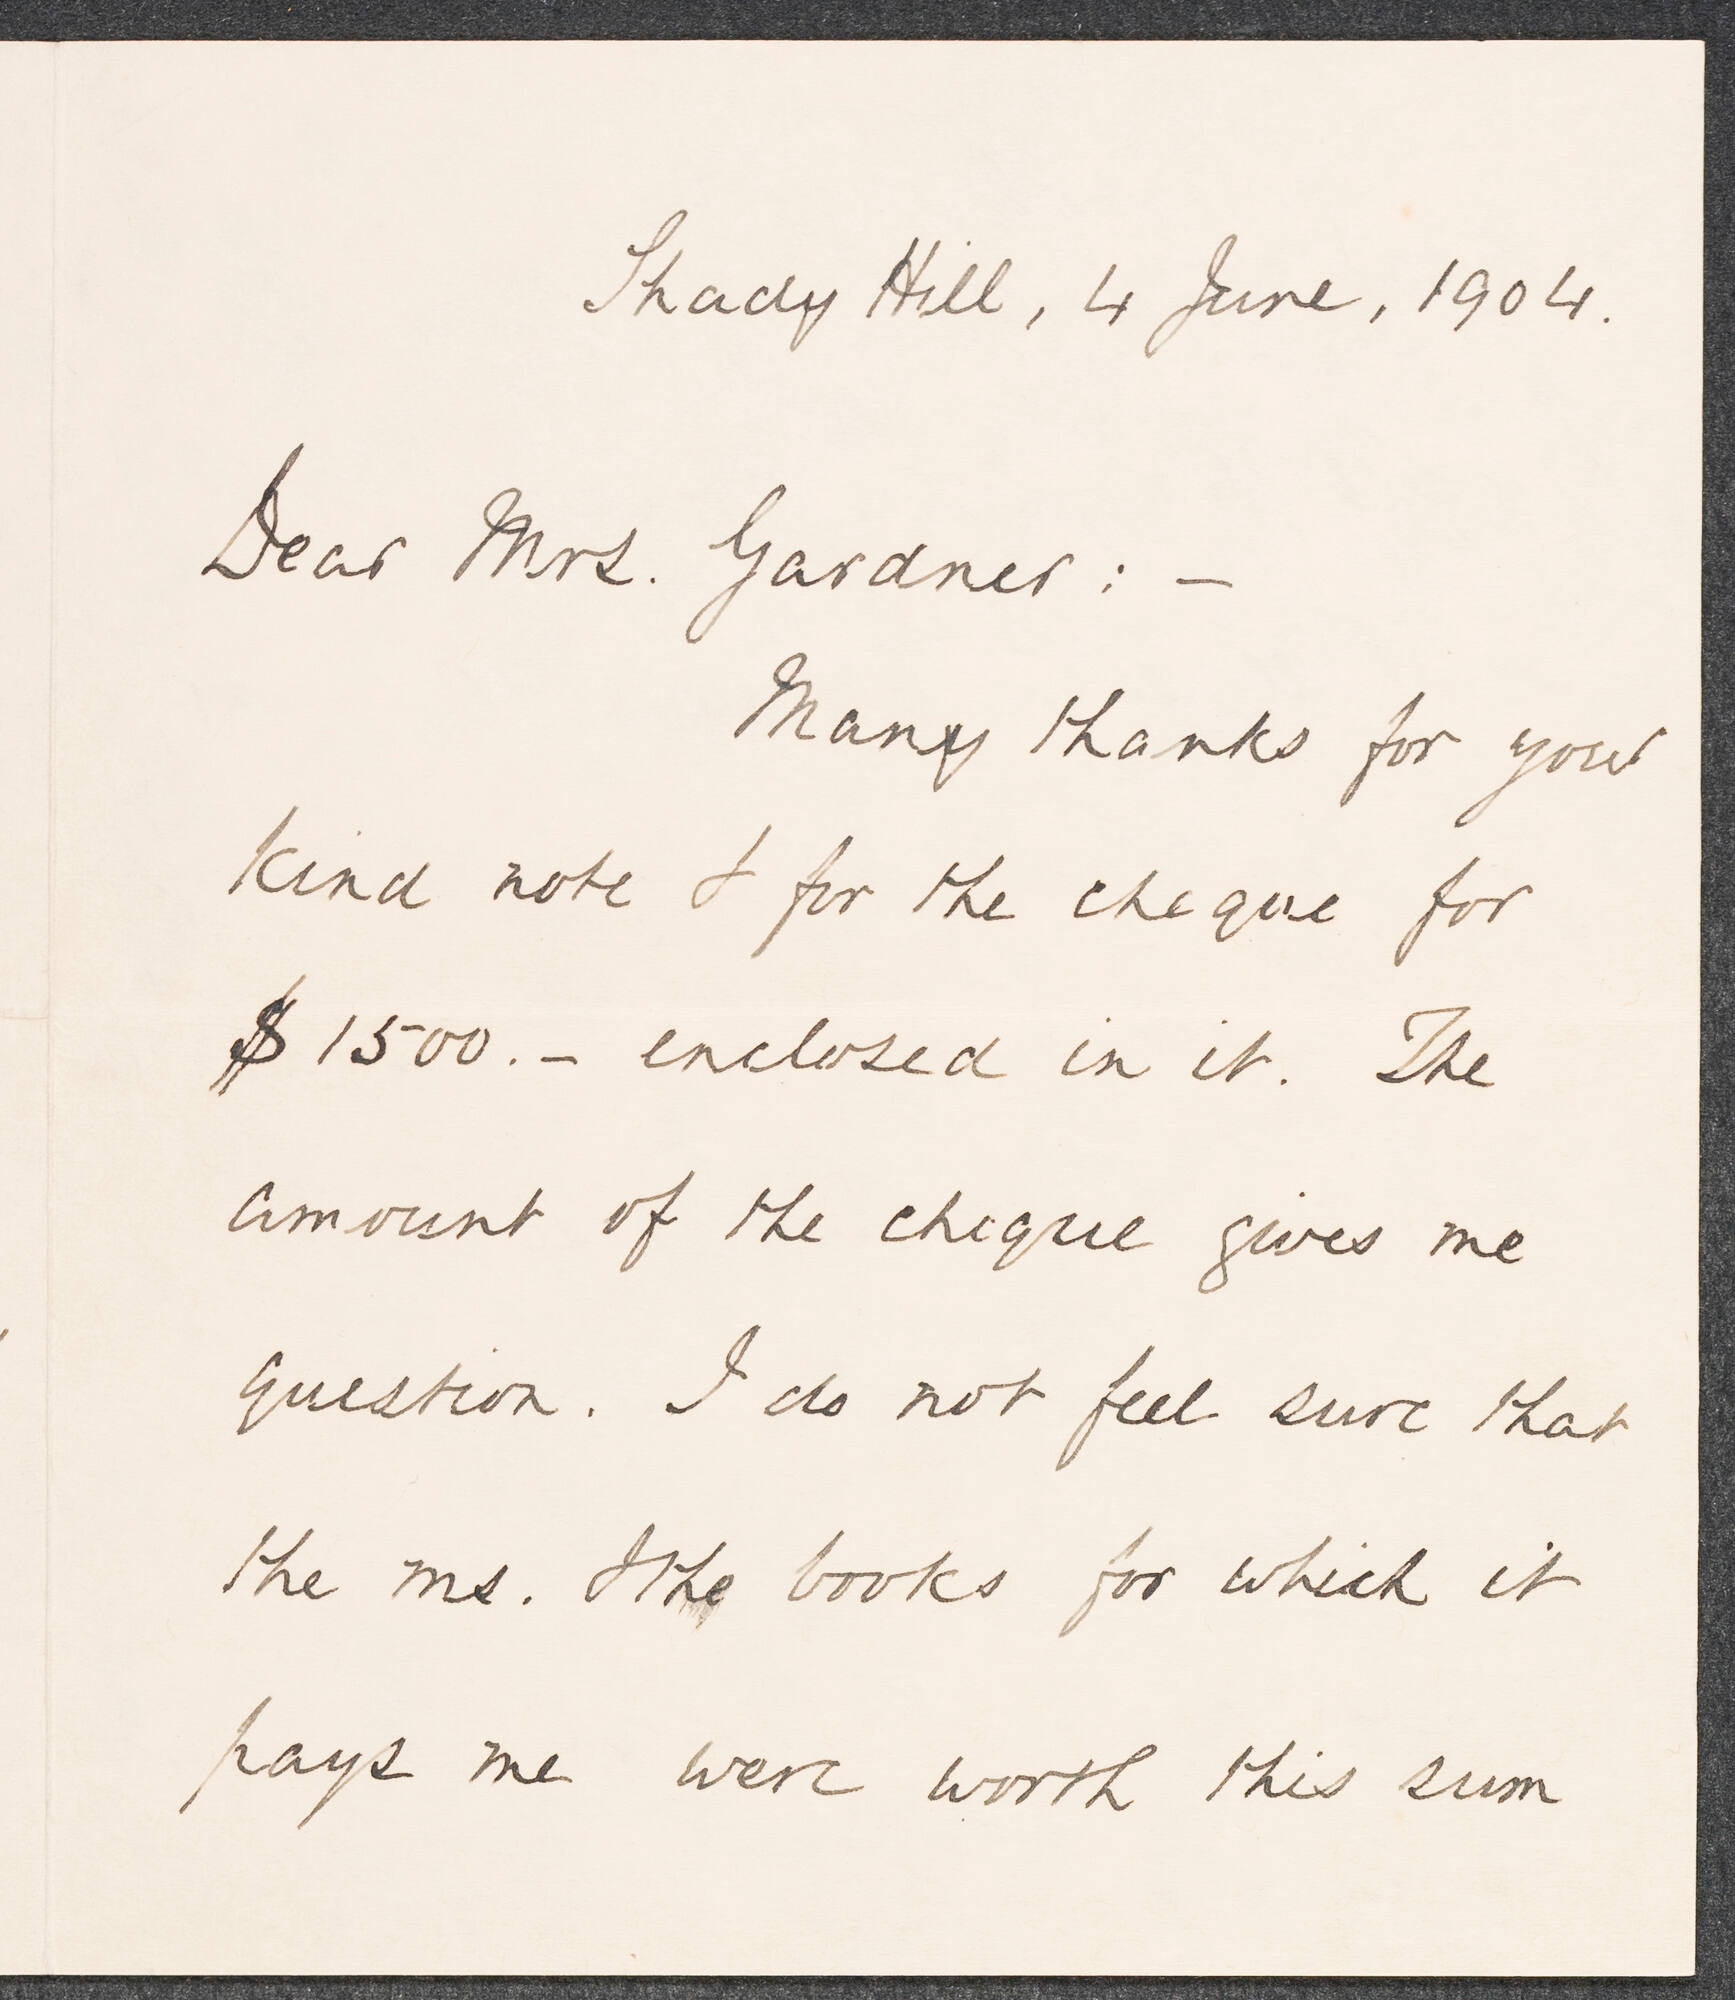 Shady Hill, 4 June, 1904.
Dear Mrs. Gardner: —
Many thanks for your
kind note & for the cheque for
$1500. — enclosed in it. The
amount of the cheque gives me
question. I do not feel sure that
the ms. & the books for which it
pays me were worth this sum